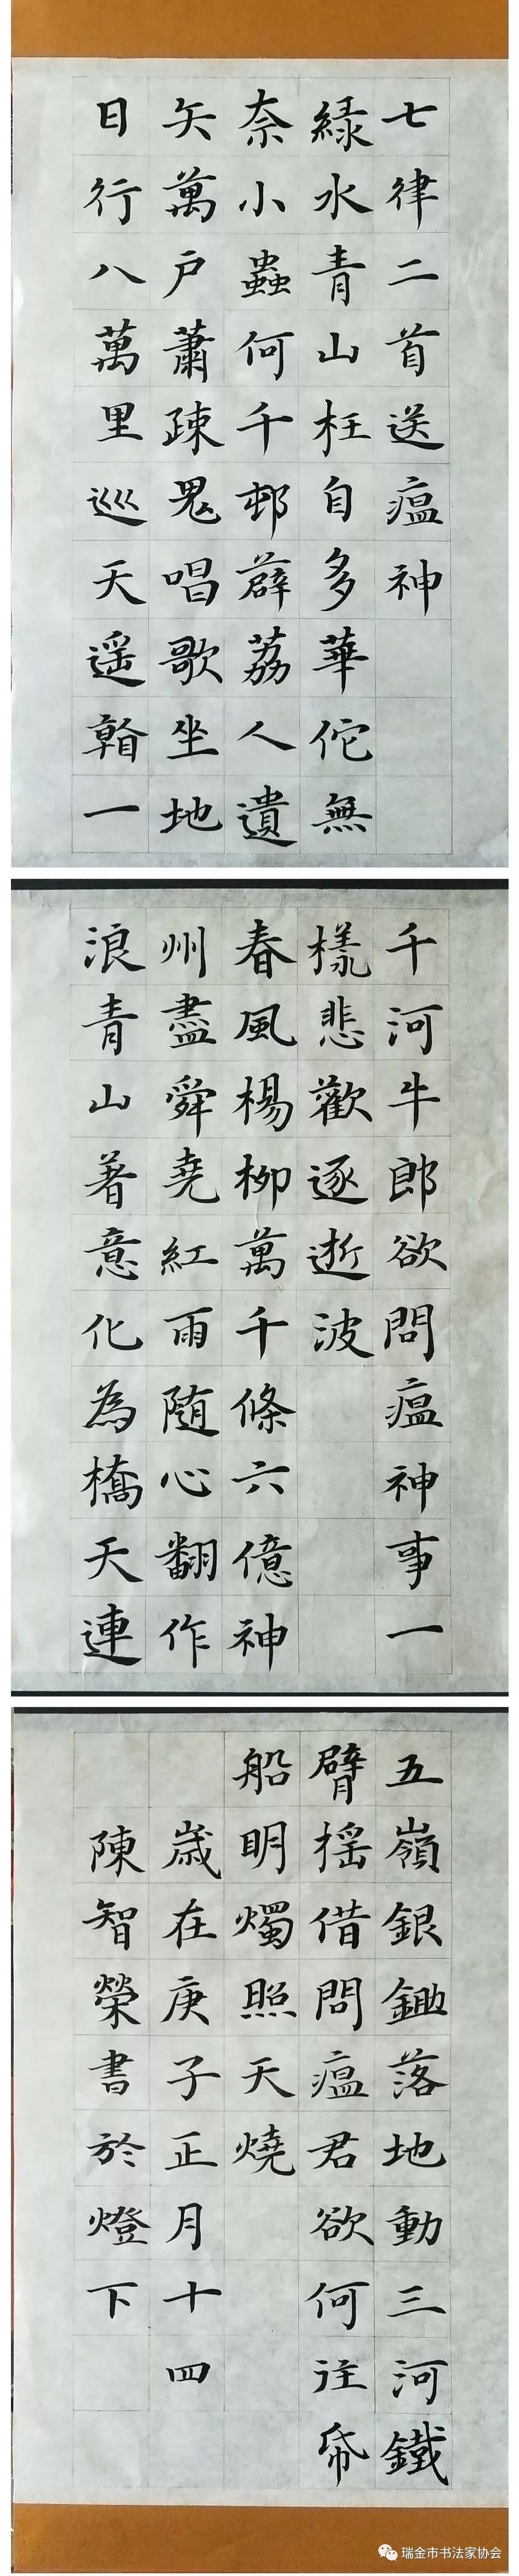 七律二首送瘟神
綠水青山枉自多華佗無
奈小蟲何千邨薜荔人遺
矢萬戶蕭疎鬼唱歌坐地
日行八萬里巡天遥翰一
千河牛郎欲問瘟神事一
樣悲歡逐逝波
春風楊柳萬千條六億神
州盡舜堯紅雨随心翻作
浪青山著意化為橋天連
五嶺銀鋤落地動三河鐵
臂摇借問瘟君欲何往帋
船明燭照天燒
歳在庚子正月十四
陳智榮書於燈下
瑞金市书法家协会